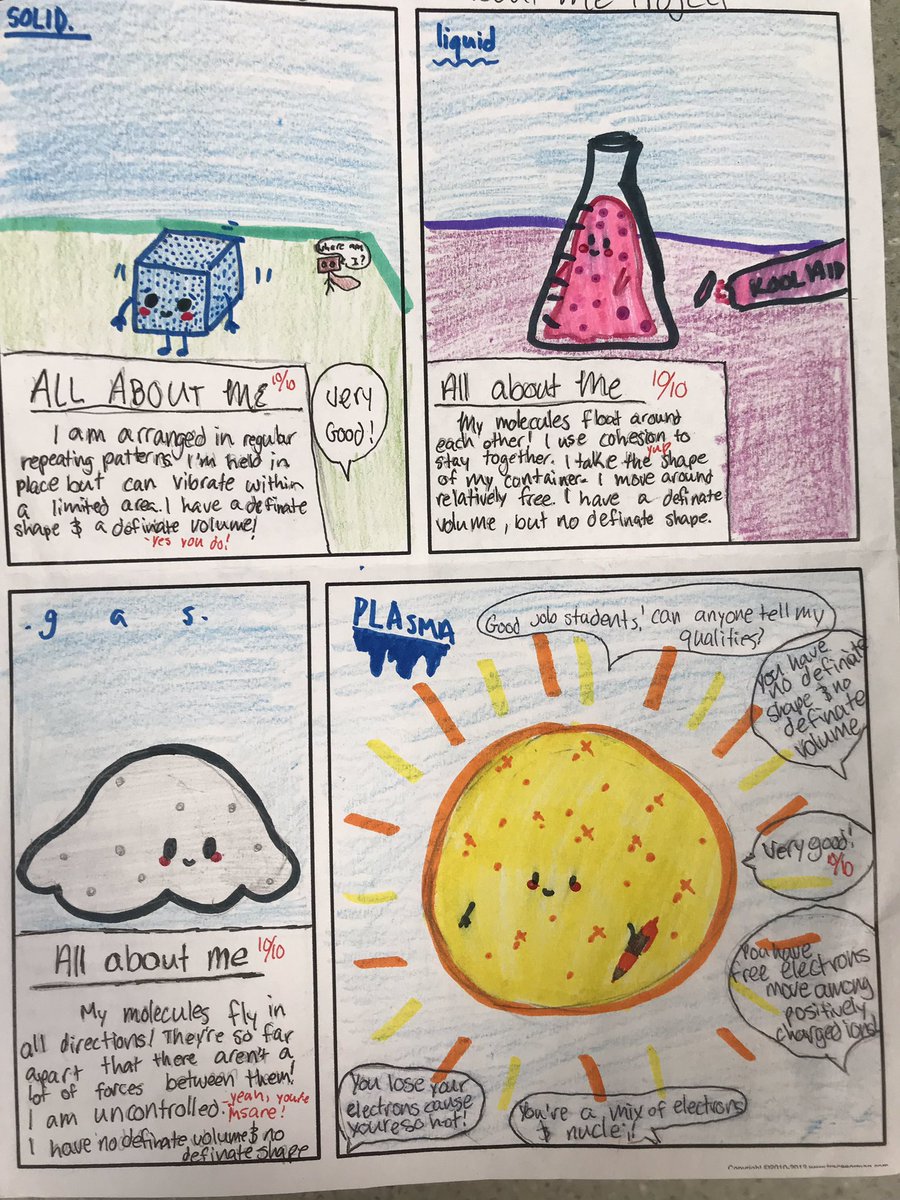 About Me Project
SOLID.
Where am
I?
ALL ABOUT ME 10/10
Very
Good!
I am arranged in regular
repeating patterns. I'm held in
place but can vibrate within
a limited area. I have a definate
shape & a definiate volume!
-yes you do!
liquid
KOOL AID
All about Me 10/10
My molecules float around
each other! I use cohesion to
stay together. I take the shape
yup
of my container. I move around
relatively free. I have a definate
volume, but no definate shape.
.g a s.
All about me 10/10
My molecules fly in
all directions! They're so far
apart that there aren't a
lot of forces between them!
I am uncontrolled. -yeah, you're
insane!
I have no definate volume & no
definate shape
PLASMA
Good job students! can anyone tell my
qualities?
You have
no definate
shape & no
definate
volume
Very good!
10/10
You have
free electrons
move among
positively
charged ions!
You lose your
electrons cause
youre so hot!
You're a mix of electrons
& nuclei!
Copyright ©2010-2013